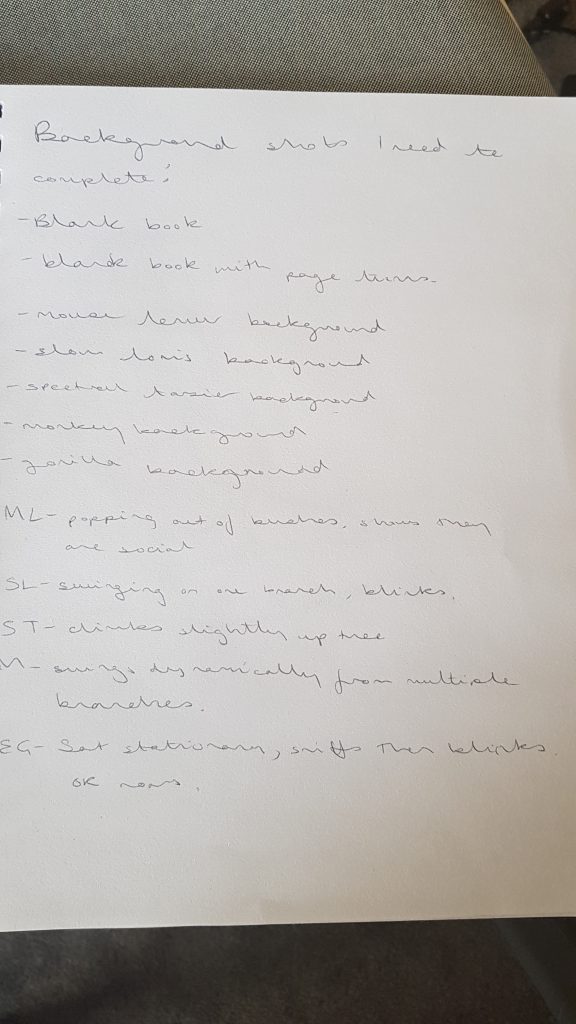 Background shots I need to
complete:
- Blank book
- blank book with page turns.
- mouse lemur background
- slow loris background
- spectral tarsier background
- monkey background
- gorilla background
ML - popping out of bushes, shows they
are social
SL - swinging on one branch, blinks.
ST - climbs slightly up tree
M - swings dynamically from multiple
branches.
EG - Sat stationary, sniffs then blinks.
OR